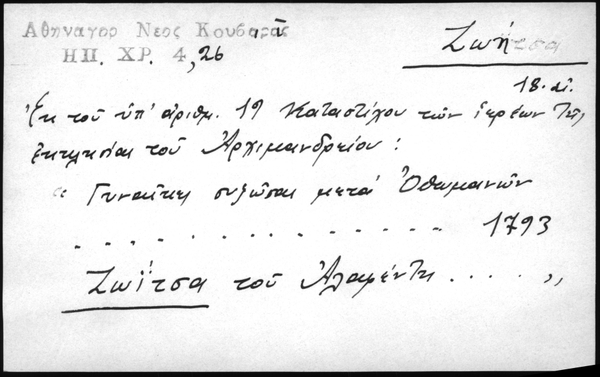 Αθηναγορ Νεος Κουβαρᾶς
ΗΠ. ΧΡ. 4, 26
Ζωήτσα
18. αἰ.
Ἐκ τοῦ ὑπ' ἀριθμ. 19 Καταστίχου τῶν ἱερέων τῆς
ἐκκλησίας τοῦ Ἀρχιμανδρείου :
" Γυναῖκες συζῶσαι μετὰ Ὀθωμανῶν
. . . . . . . . . . . . . . . 1793
Ζωΐτσα τοῦ . . . . ,,